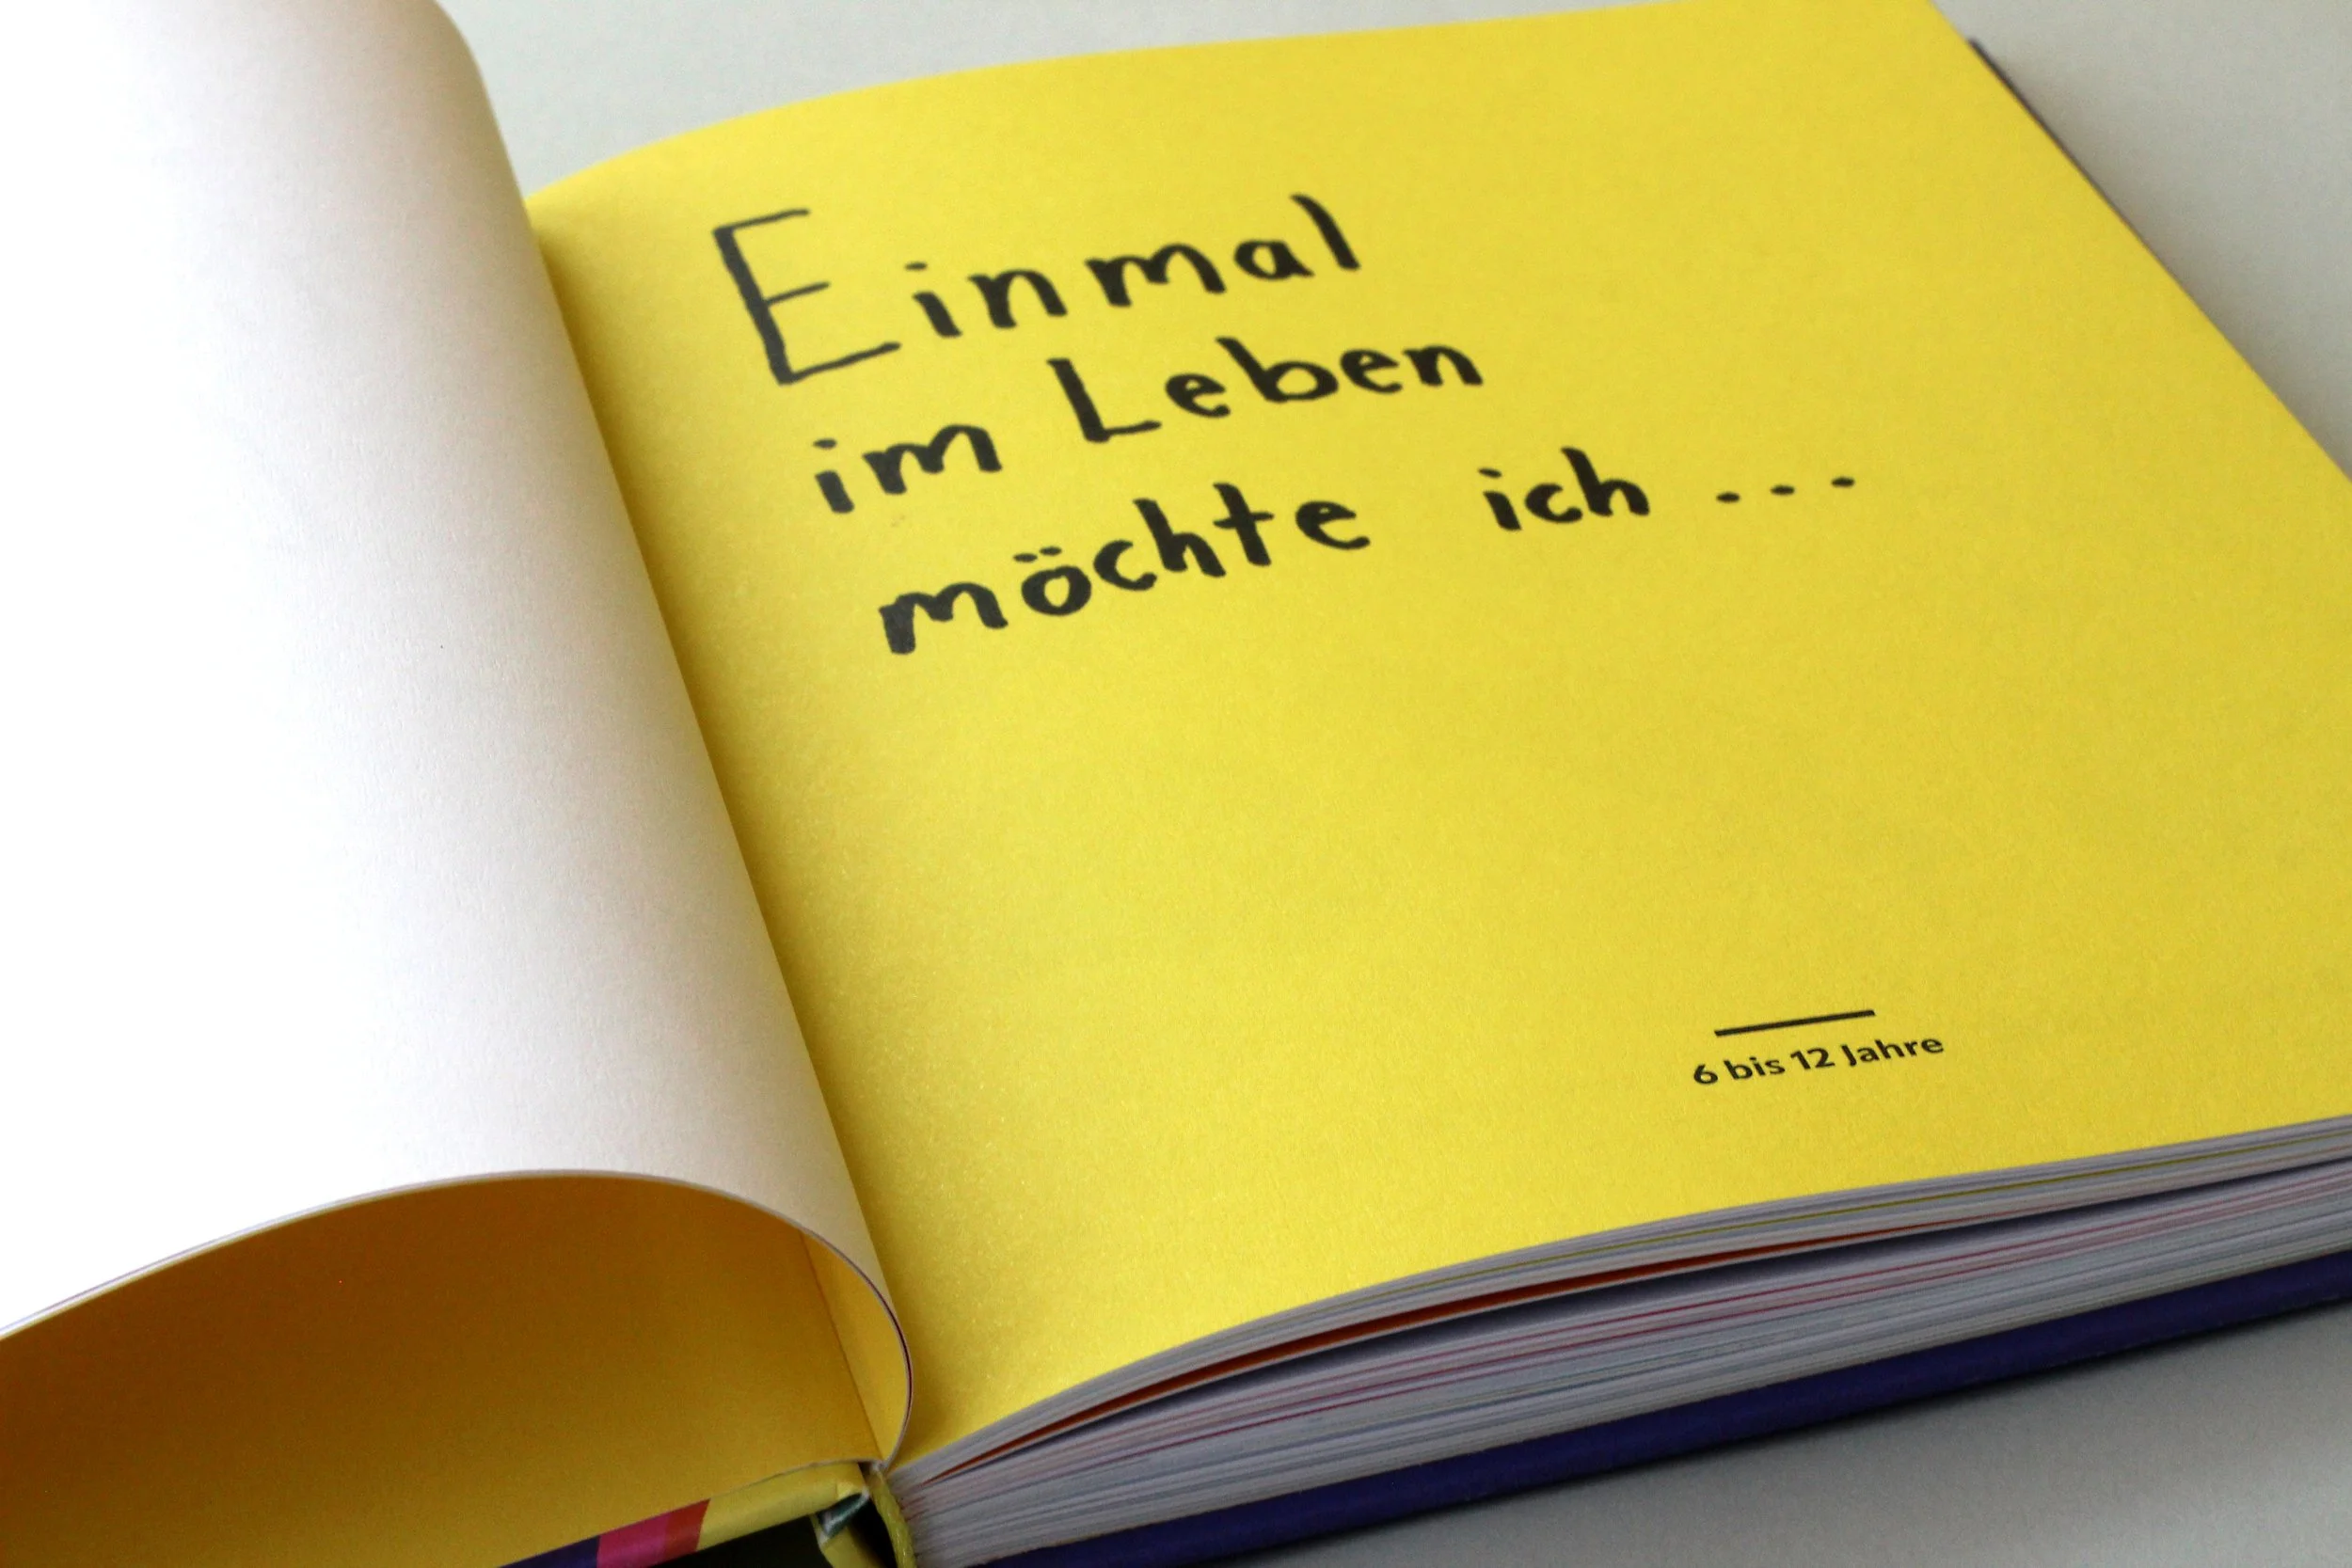 Einmal
im Leben
möchte ich ...
6 bis 12 Jahre